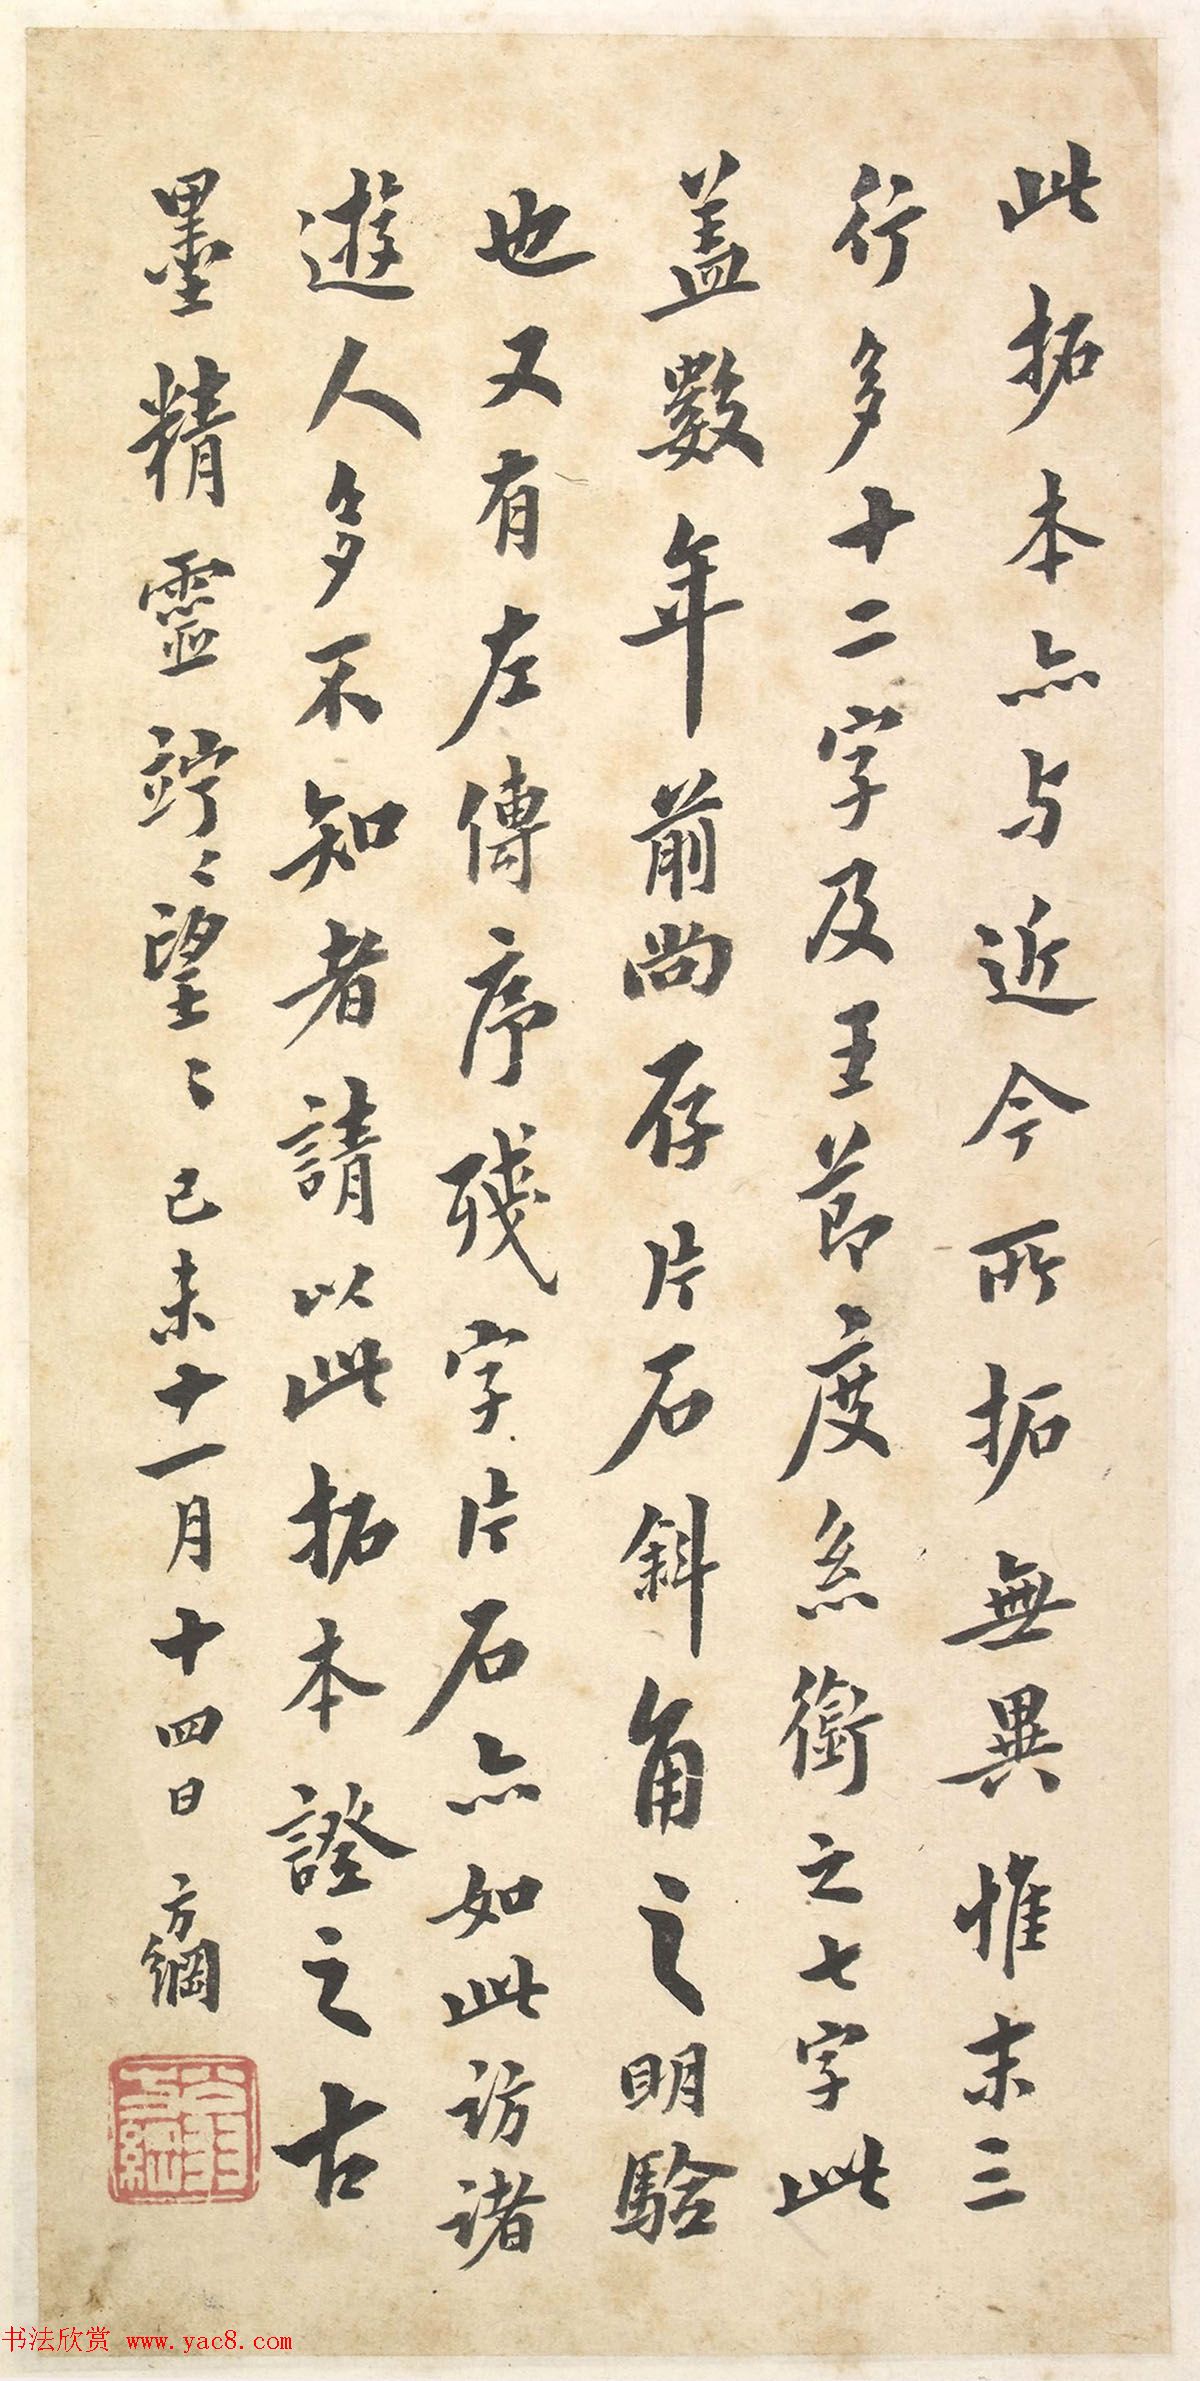 此拓本亦与近今所拓無異惟末三
行多十二字及王節度系銜之七字此
蓋數年前尚存片石斜角之明驗
也又有左傳序殘字片石亦如此訪諸
遊人多不知者請以此拓本證之古
墨精靈竚〻望〻己未十一月十四日方綱
翁方綱
书法欣赏 www.yac8.com